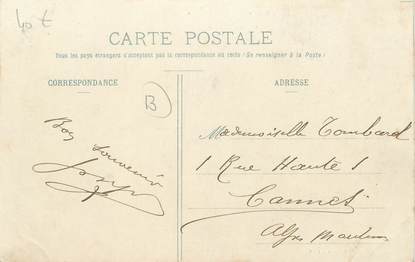 40 €
CARTE POSTALE
Tous les pays étrangers n'acceptent pas la correspondance au recto (Se renseigner à la Poste)
CORRESPONDANCE
ADRESSE
B
Bon souvenir
Mademoiselle Tombard
1 Rue Haute 1
Cannes
Alpes Maritimes